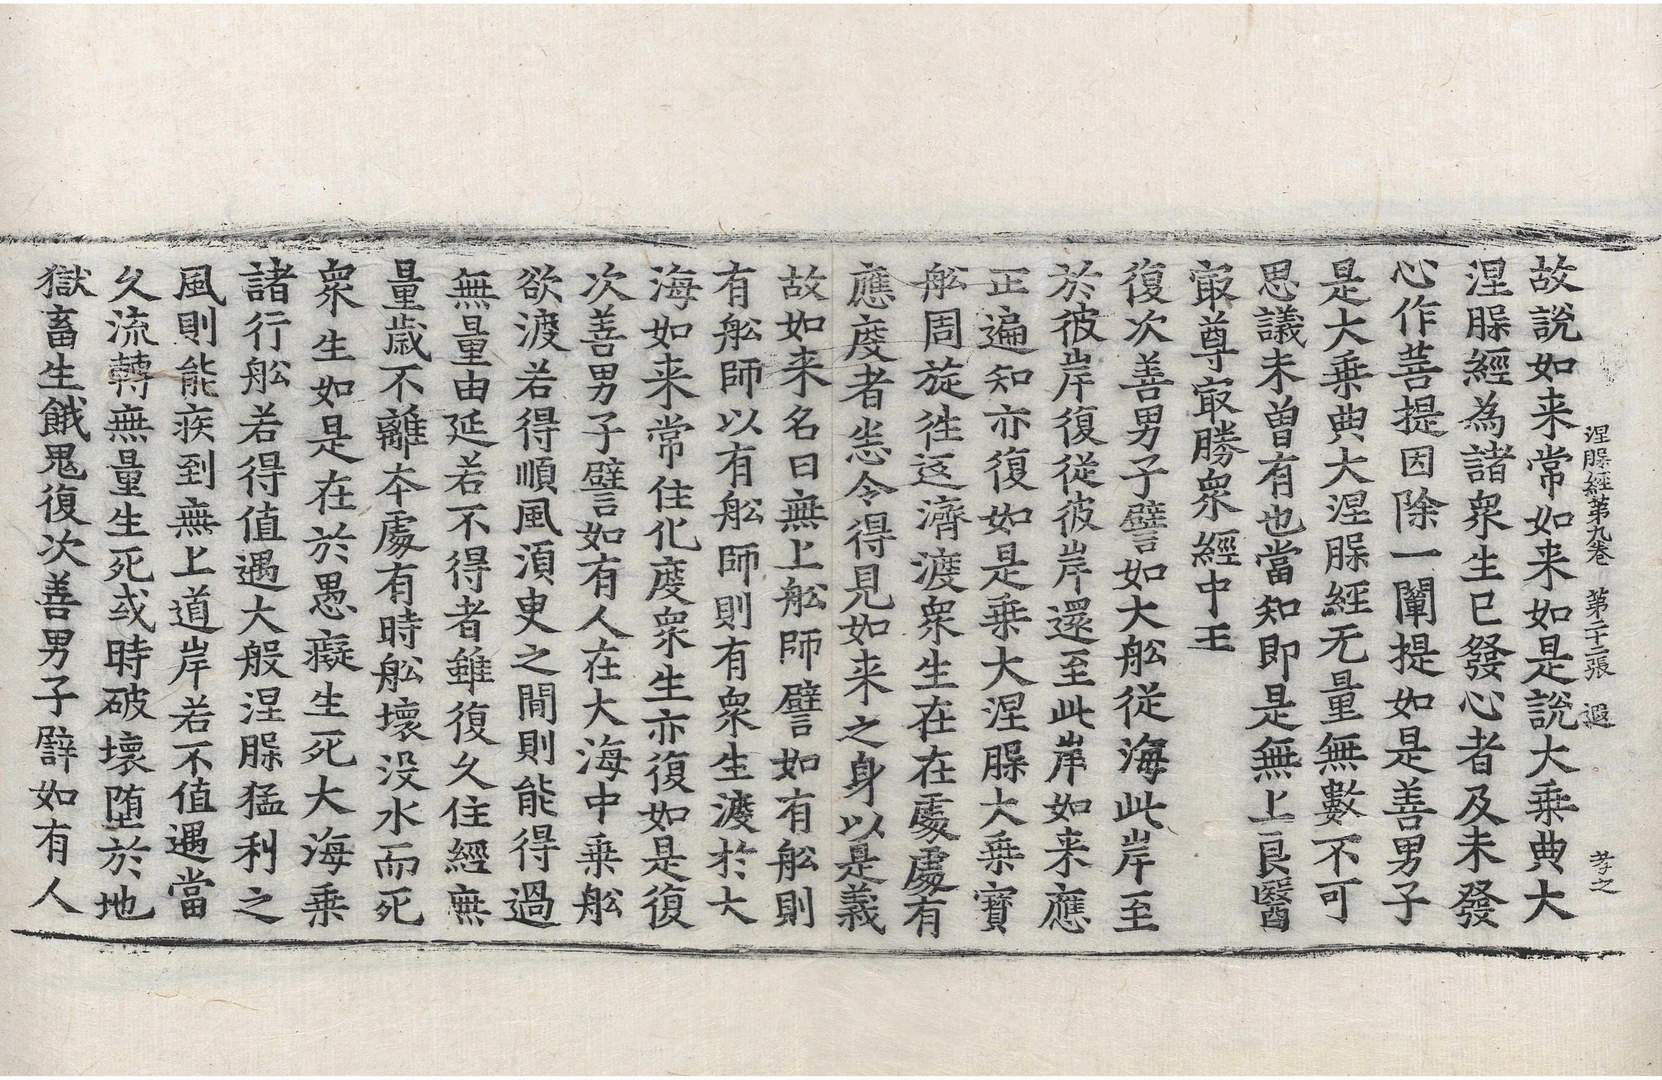 涅槃經第九卷　第二十二張　遐　孝之
故說如来常如来如是說大乗典大
涅槃經為諸衆生已發心者及未發
心作菩提因除一闡提如是善男子
是大乗典大涅槃經无量無數不可
思議未曽有也當知即是無上良醫
㝡尊㝡勝衆經中王
復次善男子譬如大舩從海此岸至
於彼岸復從彼岸還至此岸如来應
正遍知亦復如是乗大涅槃大乗寶
舩周旋徃返濟渡衆生在在處處有
應度者悉令得見如来之身以是義
故如来名曰無上舩師譬如有舩則
有舩師以有舩師則有衆生渡於大
海如来常住化度衆生亦復如是復
次善男子譬如有人在大海中乗舩
欲渡若得順風湏臾之間則能得過
無量由延若不得者雖復久住經無
量歳不離本處有時舩壞没水而死
衆生如是在於愚癡生死大海乗
諸行舩若得值遇大般涅槃猛利之
風則能疾到無上道岸若不值遇當
久流轉無量生死或時破壞堕於地
獄畜生餓鬼復次善男子譬如有人